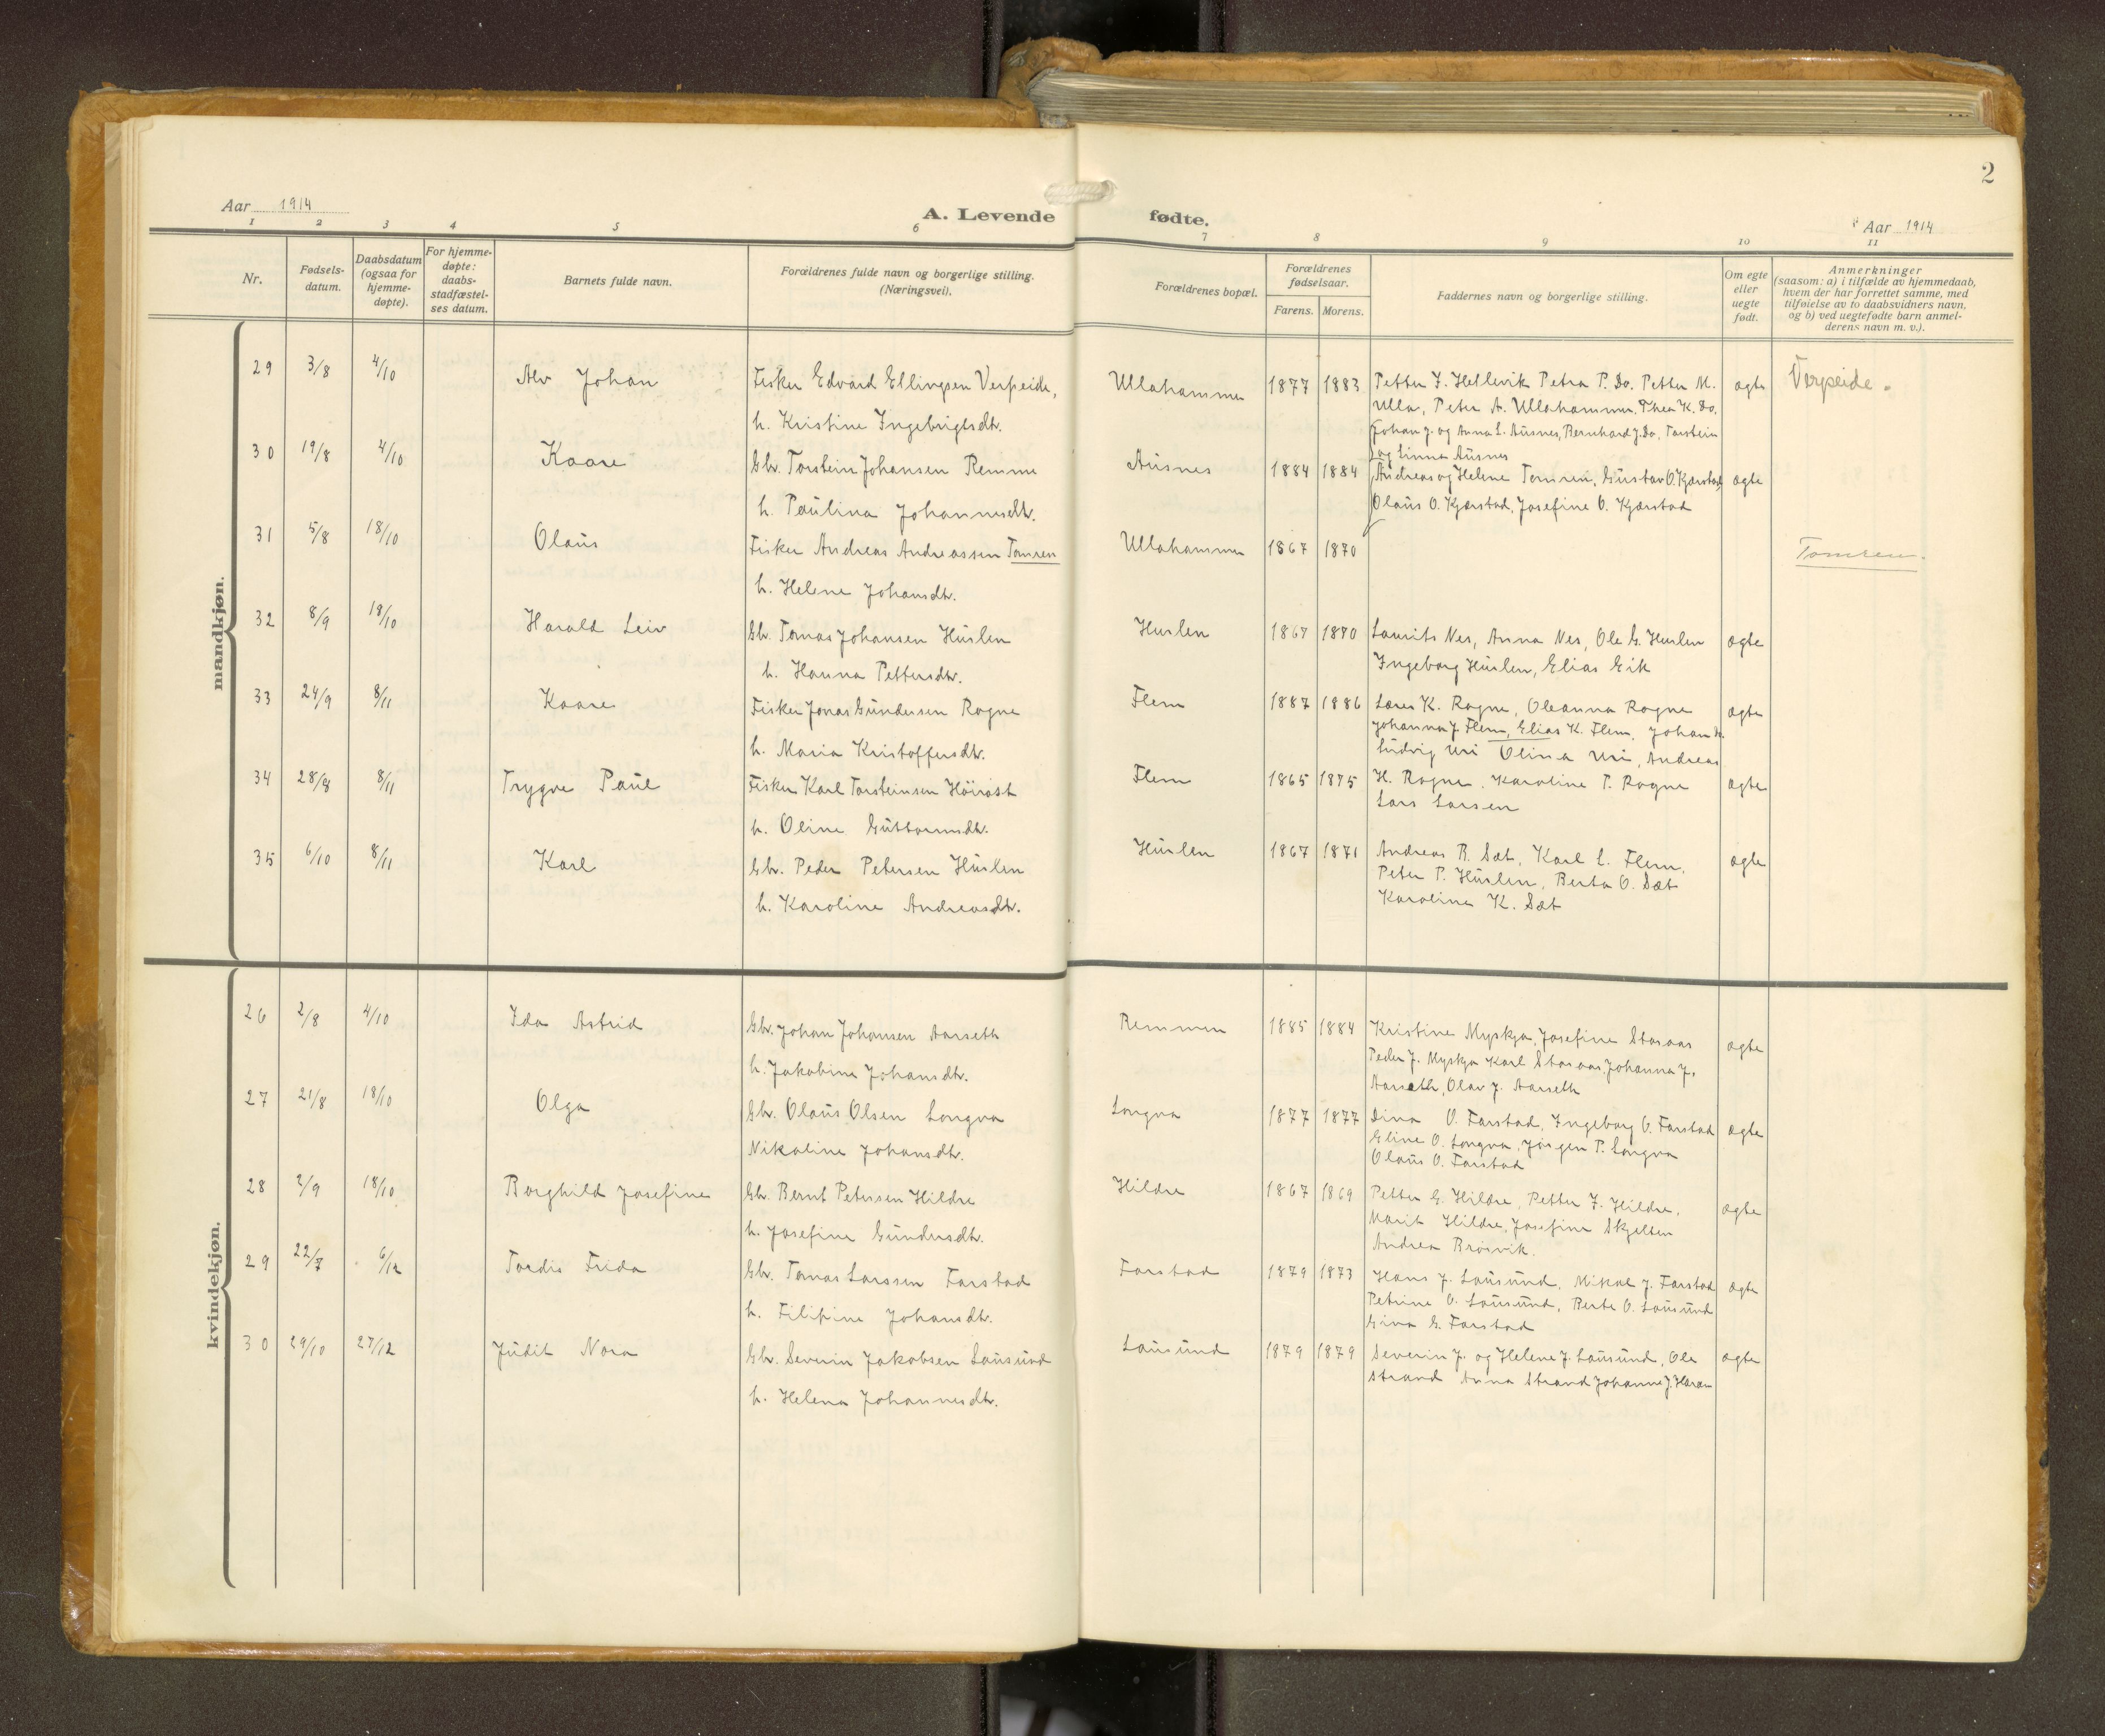 2
Aar 1914
A. Levende fødte.
Aar 1914
1 2 3 4 5 6 7 8 9 10 11
Nr.
Fødsels-
datum.
Daabsdatum
(ogsaa for
hjemme-
døpte).
For hjemme-
døpte:
daabs-
stadfæstel-
ses datum.
Barnets fulde navn.
Forældrenes fulde navn og borgerlige stilling.
(Næringsvei).
Forældrenes bopæl.
Forældrenes
fødselsaar.
Farens. Morens.
Faddernes navn og borgerlige stilling.
Om egte
eller
uegte
født.
Anmerkninger
(saasom: a) i tilfælde av hjemmedaab,
hvem der har forrettet samme, med
tilføielse av to daabsvidners navn,
og b) ved uegtefødte barn anmel-
derens navn m. v.).
mandkjøn.
29 3/8 4/10 Alv Johan Fisker Edvard Ellingsen Verpeide, Ullahammer 1877 1883 Petter F. Hellevik Petra P. Do. Petter M. ægte Verpeide.
h. Kristine Ingebrigtsdtr. Ulla, Peter A. Ullahammer. Thea K. Do.
Johan J. og Anna L. Ausnes, Bernhard J. Do, Torstein
og Linna Ausnes
30 19/8 4/10 Kaare Gbr. Torstein Johansen Remme Ausnes 1884 1884 Andreas og Helene Tomren, Gustav O. Kjærstad, ægte
h. Paulina Johannesdtr. Olaus O. Kjærstad, Josefine O. Kjærstad
31 5/8 18/10 Olaus Fisker Andreas Andreassen Tomren Ullahammer 1867 1870 Tomren.
h. Helene Johansdtr.
32 8/9 18/10 Harald Leiv Gb. Tomas Johansen Huslen Huslen 1867 1870 Laurits Nes, Anna Nes, Ole G. Huslen ægte
h. Hanna Pettersdtr. Ingeborg Huslen, Elias Eik
33 24/9 8/11 Kaare Fisker Jonas Gundersen Rogne Flem 1887 1886 K. Rogne, Oleanna Rogne ægte
h. Maria Kristoffersdtr. Johanna J. Flem, Elias K. Flem, Johan
Ludvig Uri Olina Uri, Andreas
34 28/8 8/11 Trygve Paul Fisker Karl Torsteinsen Flem 1865 1875 H. Rogne. Karoline P. Rogne ægte
h. Oline Guttormsdtr. Lars Larsen
35 6/10 8/11 Karl Gbr. Peder Petersen Huslen Huslen 1867 1871 Andreas R. Sæt, Karl L. Flem, ægte
h. Karoline Andreasdtr. Peter P. Huslen, Berta O. Sæt
Karoline K. Sæt
kvindekjøn.
26 2/8 4/10 Ida Astrid Gbr. Johan Johansen Aarseth Remmem 1885 1884 Kristine Myskja, Josefine Storaas ægte
h. Jakobine Johansdtr. Peder J. Myskja Karl Storaas, Johanna J.
Aarseth, Olav J. Aarseth
27 21/8 18/10 Olga Gbr. Olaus Olsen Longva Longva 1877 1877 Dina O. Farstad, Ingeborg O. Farstad ægte
Nikoline Johansdtr. Eline O. Longva, Jørgen P. Longva
Olaus O. Farstad
28 2/9 18/10 Borghild Josefine Gbr. Bernt Petersen Hildre Hildre 1867 1869 Petter G. Hildre, Petter F. Hildre, ægte
h. Josefine Gundersdtr. Marit Hildre, Josefine Skjelten
Andrea Brøsvik.
29 22/7 6/12 Tordis Frida Gbr. Tomas Larssen Farstad Farstad 1879 1873 Hans J. Lausund, Mikal J. Farstad ægte
h. Filipine Johansdtr. Petrine O. Lausund, Berte O. Lausund
G. Farstad
30 29/10 27/12 Judit Nora Gbr. Severin Jakobsen Lausund Lausund 1879 1879 Severin J. og Helene J. Lausund, Ole ægte
h. Helena Johannesdtr. Strand Anna Strand Johanne J. Haram